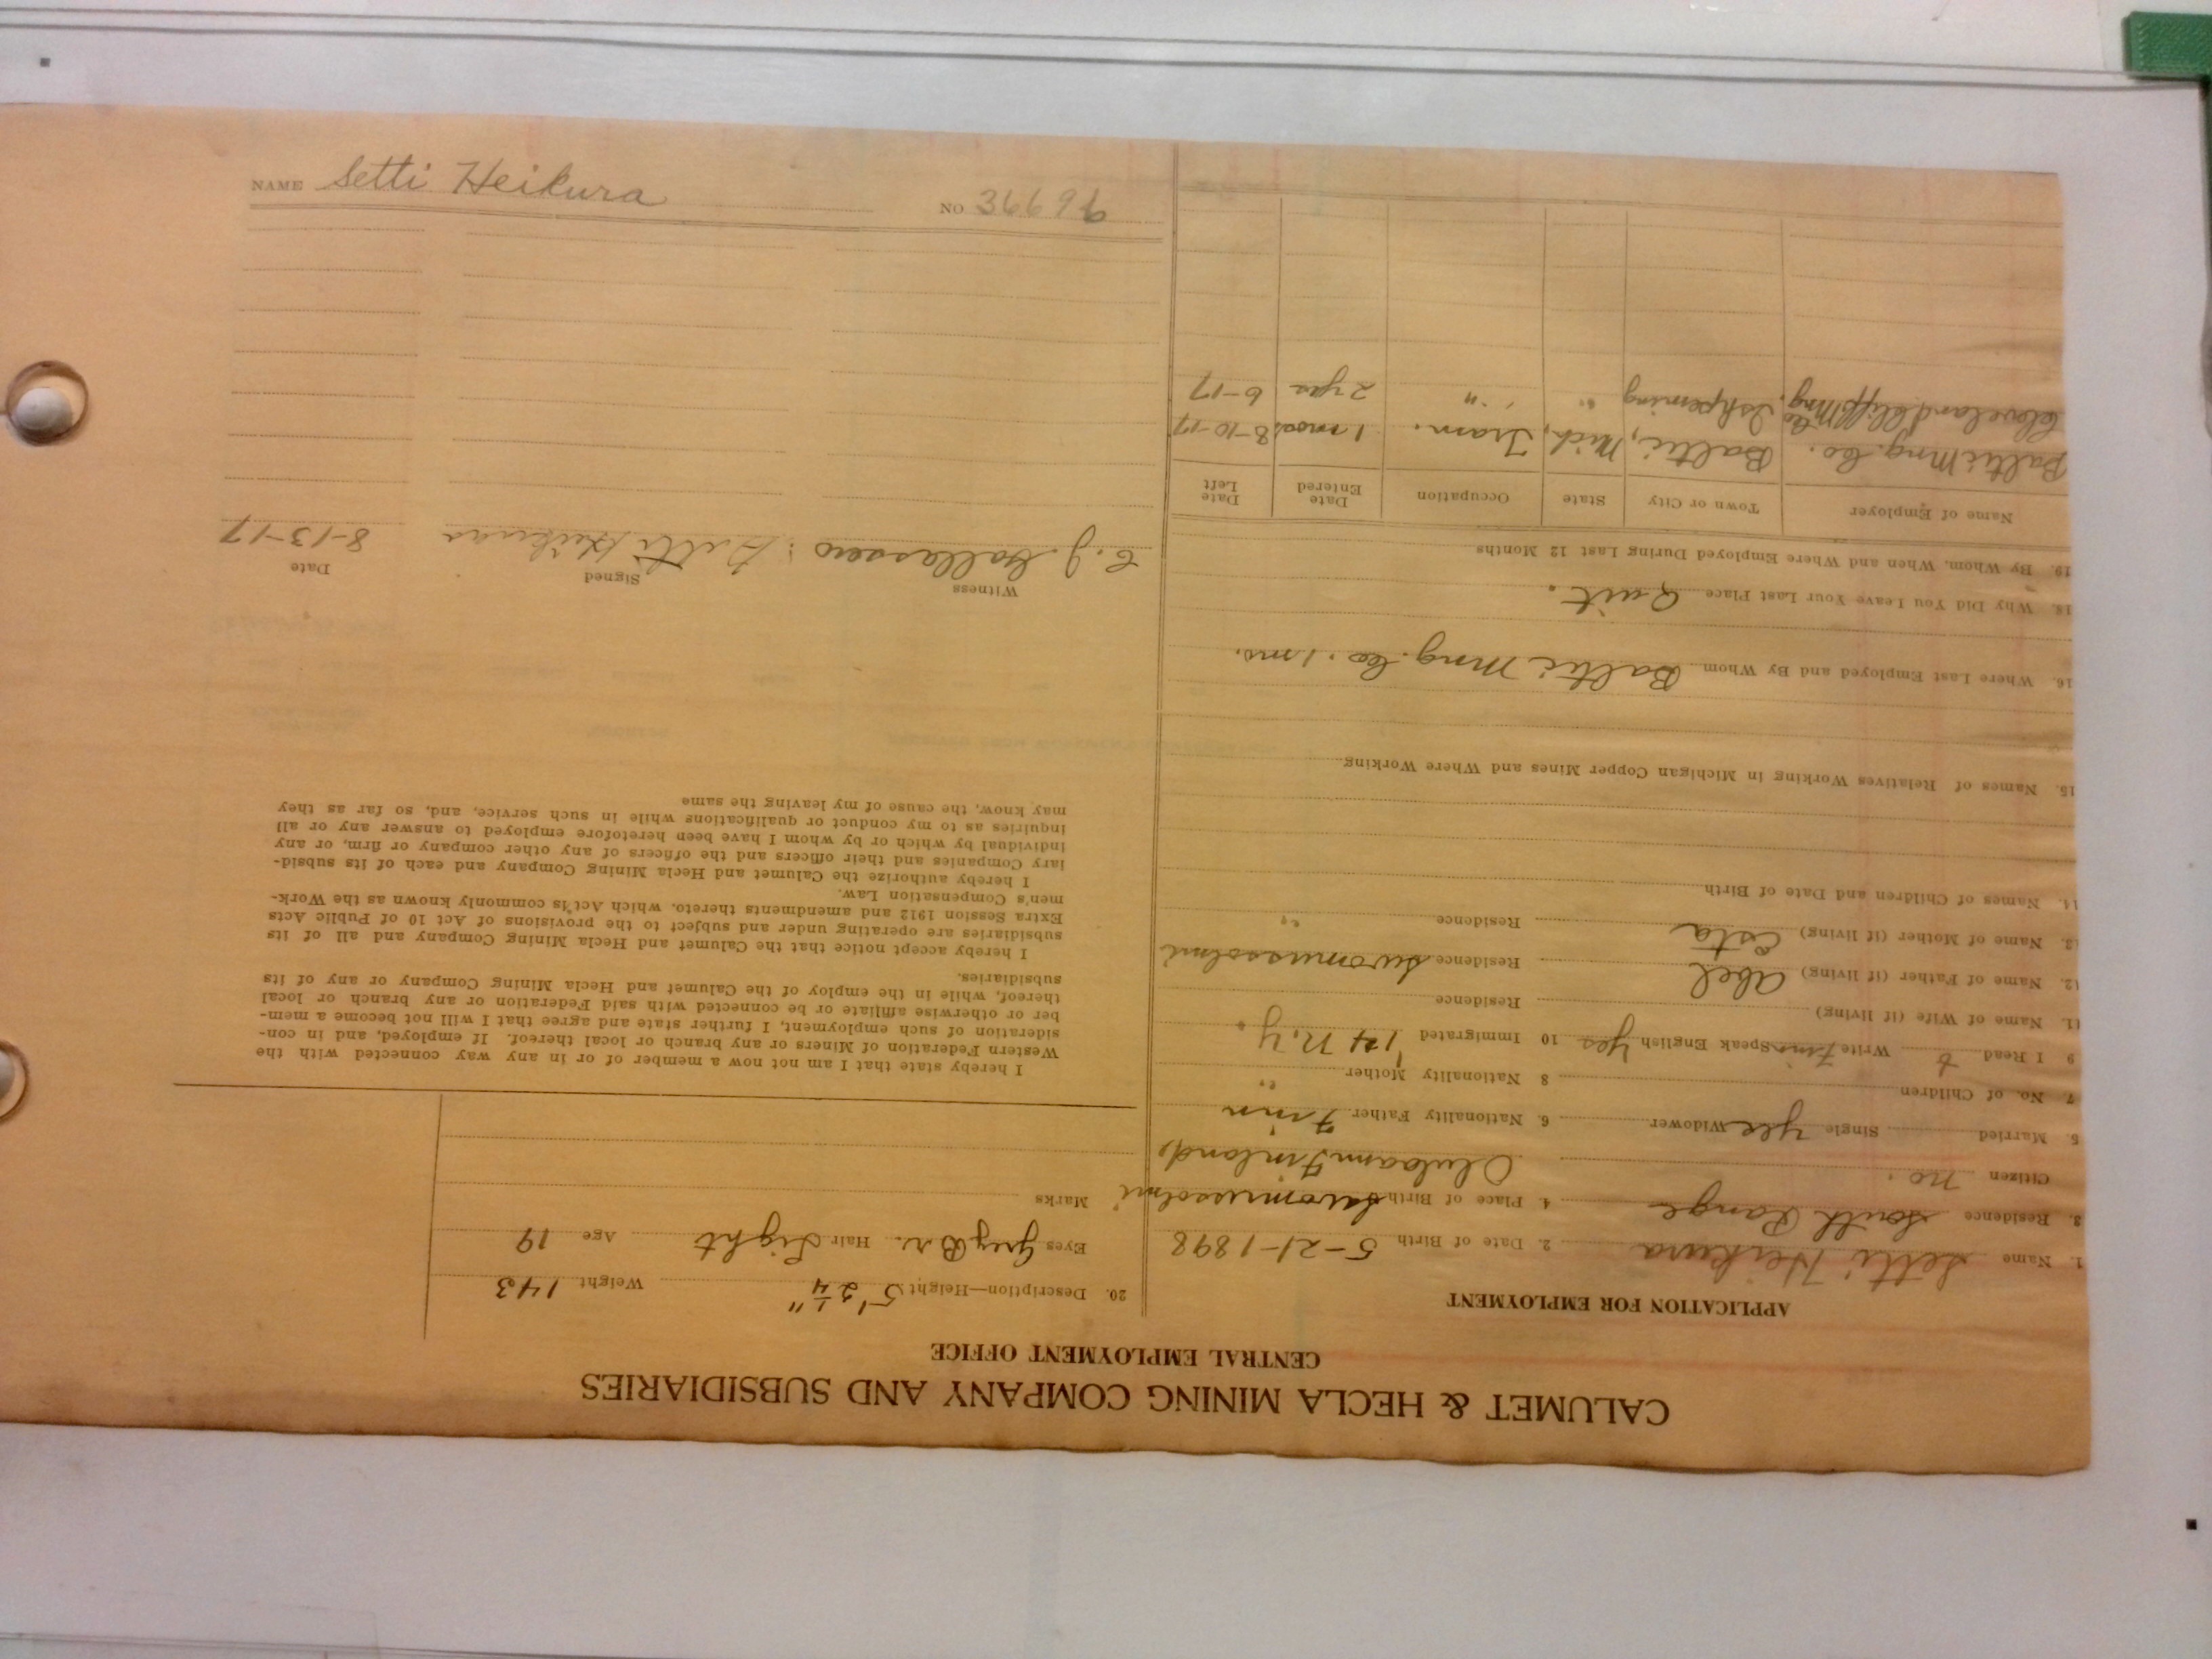 CALUMET & HECLA MINING COMPANY AND SUBSIDIARIES
CENTRAL EMPLOYMENT OFFICE
APPLICATION FOR EMPLOYMENT
1. Name Setti Heikura 2. Date of Birth 5-21-1898
3. Residence South Range 4. Place of Birth Suomussalmi
Citizen no. Finland
5. Married Single Yes Widower 6. Nationality Father Finn
7. No. of Children 8 Nationality Mother "
9 I Read Write Finn Speak English Yes 10 Immigrated '14 N.Y.
11. Name of Wife (if living) Residence
12. Name of Father (if living) Abel Residence Suomussalmi
13. Name of Mother (if living) Esta Residence "
14. Names of Children and Date of Birth
15. Names of Relatives Working in Michigan Copper Mines and Where Working
16. Where Last Employed and By Whom Baltic Mng. Co. 1 mo.
18. Why Did You Leave Your Last Place Quit.
19. By Whom, When and Where Employed During Last 12 Months
Name of Employer Town or City State Occupation Date Entered Date Left
Baltic Mng. Co. Baltic, Mich, Tram. 1 mos. 8-10-17
Cleveland Cliffs Mng. Co Ishpeming " " 2 yrs 6-17
20. Description—Height 5' 2 1/4" Weight 143
Eyes Grey Br. Hair Light Age 19
Marks
I hereby state that I am not now a member of or in any way connected with the
Western Federation of Miners or any branch or local thereof. If employed, and in con-
sideration of such employment, I further state and agree that I will not become a mem-
ber or otherwise affiliate or be connected with said Federation or any branch or local
thereof, while in the employ of the Calumet and Hecla Mining Company or any of its
subsidiaries.
I hereby accept notice that the Calumet and Hecla Mining Company and all of its
subsidiaries are operating under and subject to the provisions of Act 10 of Public Acts
Extra Session 1912 and amendments thereto. which Act is commonly known as the Work-
men's Compensation Law.
I hereby authorize the Calumet and Hecla Mining Company and each of its subsid-
iary Companies and their officers and the officers of any other company or firm, or any
individual by which or by whom I have been heretofore employed to answer any or all
inquiries as to my conduct or qualifications while in such service, and, so far as they
may know, the cause of my leaving the same
Witness Signed Date
Setti Heikura 8-13-17
NAME Setti Heikura NO 36696